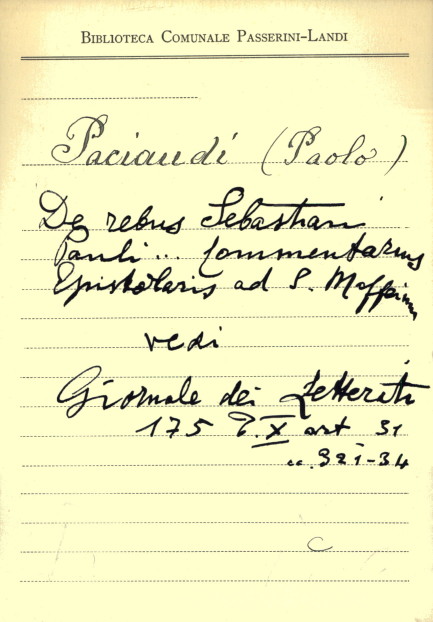 BIBLIOTECA COMUNALE PASSERINI-LANDI
Paciaudi (Paolo)
De rebus Sebastiani
Pauli... Commentarius
Epistolaris ad S. Maffeium
vedi
Giornale dei Letterati
175 T. X art 31
cc. 321-34
C